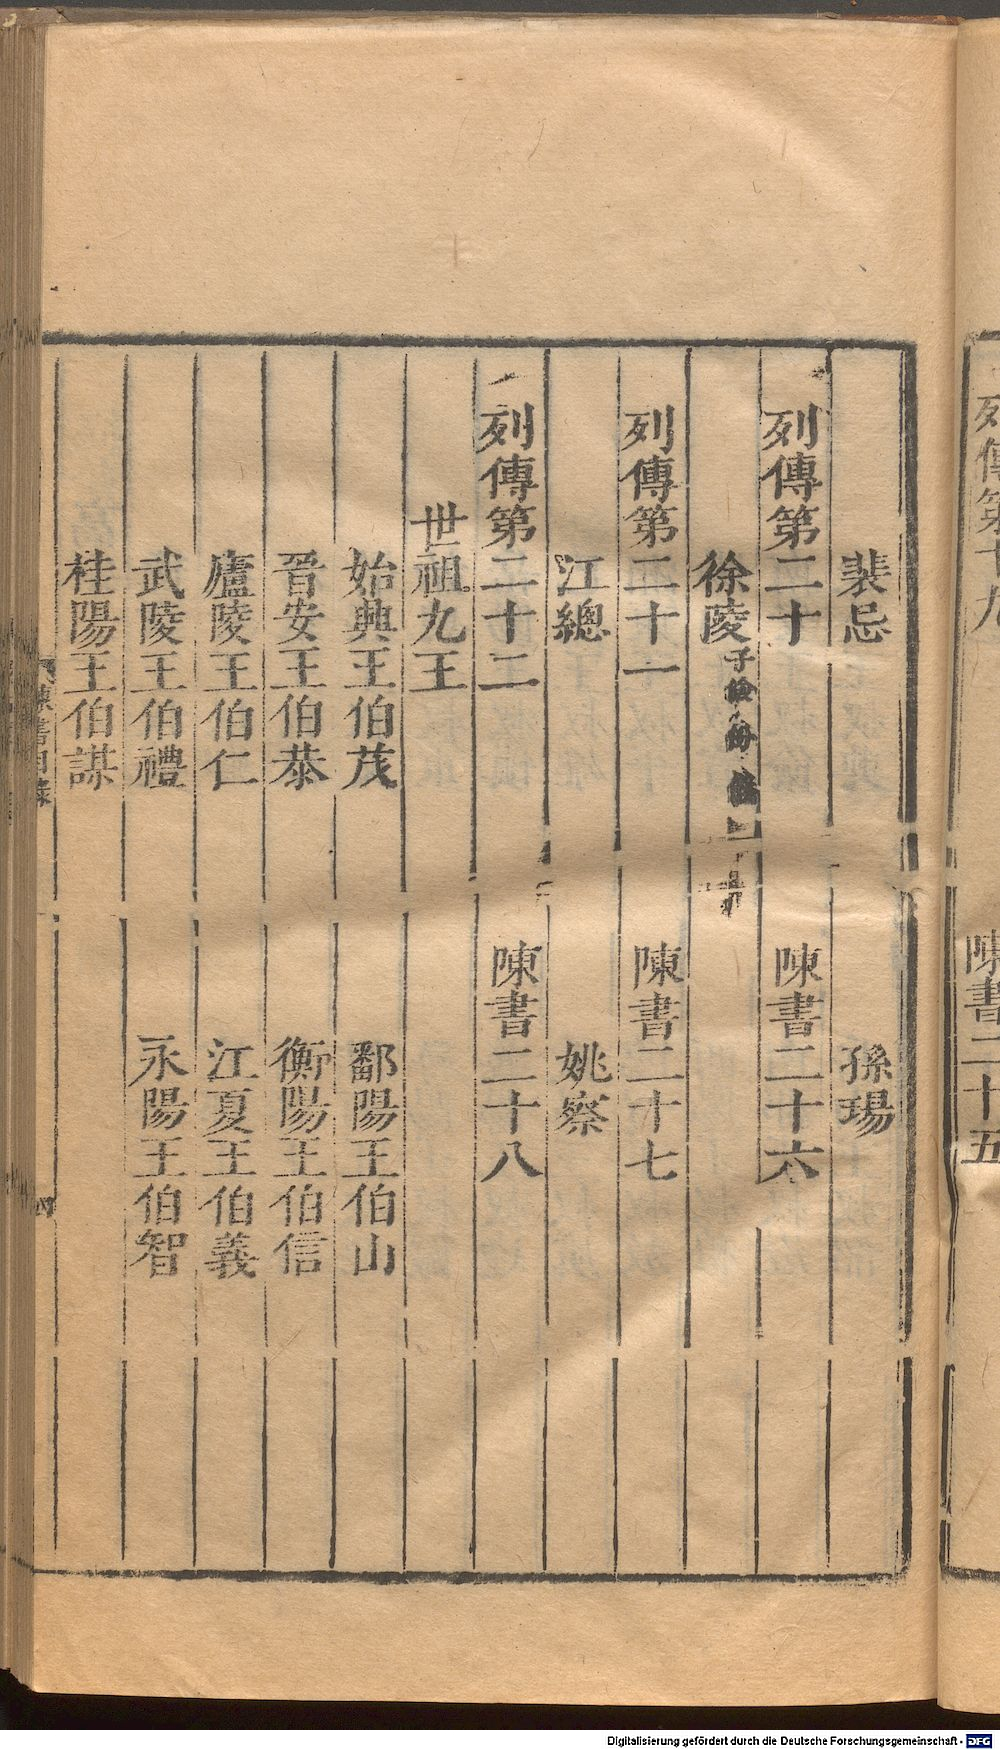 列傳第十九 陳書二十五
裴忌 孫瑒
列傳第二十 陳書二十六
徐陵 子儉 份 儀
列傳第二十一 陳書二十七
江總 姚察
列傳第二十二 陳書二十八
世祖九王
始興王伯茂 鄱陽王伯山
晉安王伯恭 衡陽王伯信
廬陵王伯仁 江夏王伯義
武陵王伯禮 永陽王伯智
桂陽王伯謀
陳書目錄 四
Digitalisierung gefördert durch die Deutsche Forschungsgemeinschaft - DFG